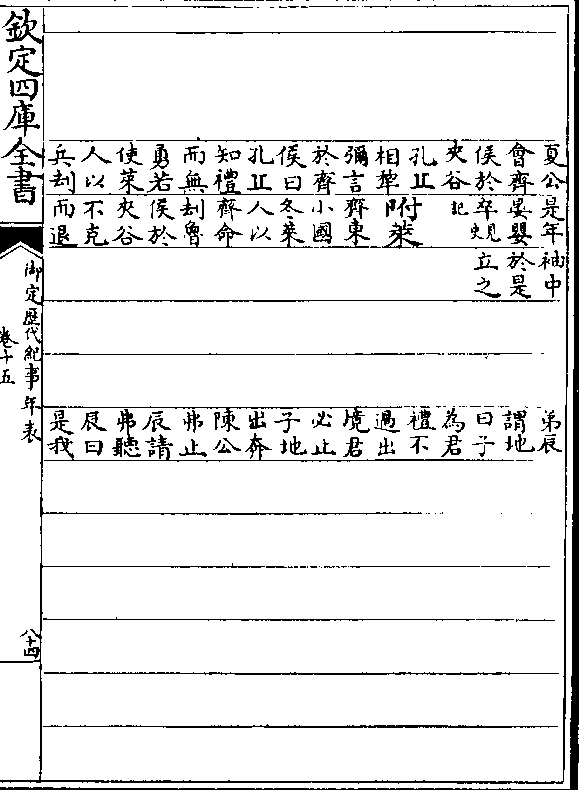 欽定四庫全書
夏公會齊侯於夾谷孔丘相犂彌言於齊侯曰孔丘知禮而無勇若使萊人以兵刦
是年晏嬰卒見史記
附萊
齊東小國冬萊人以齊命刦魯侯於夾谷不克而退
袖中於是立之
弟辰謂地曰子為君禮不過出境君必止子地出奔陳公弗止辰請弗聽辰曰是我
御定歷代紀事年表
卷十五
八十四